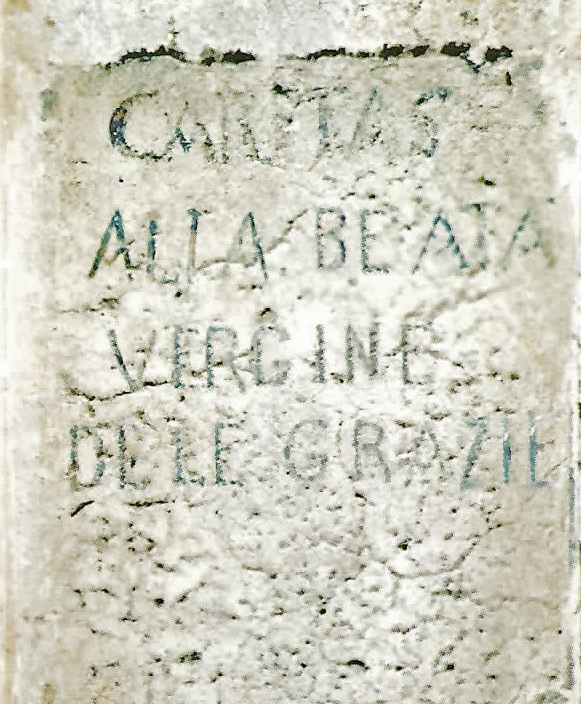 CARITAS
ALLA BEATA
VERGINE
DELE GRAZIE